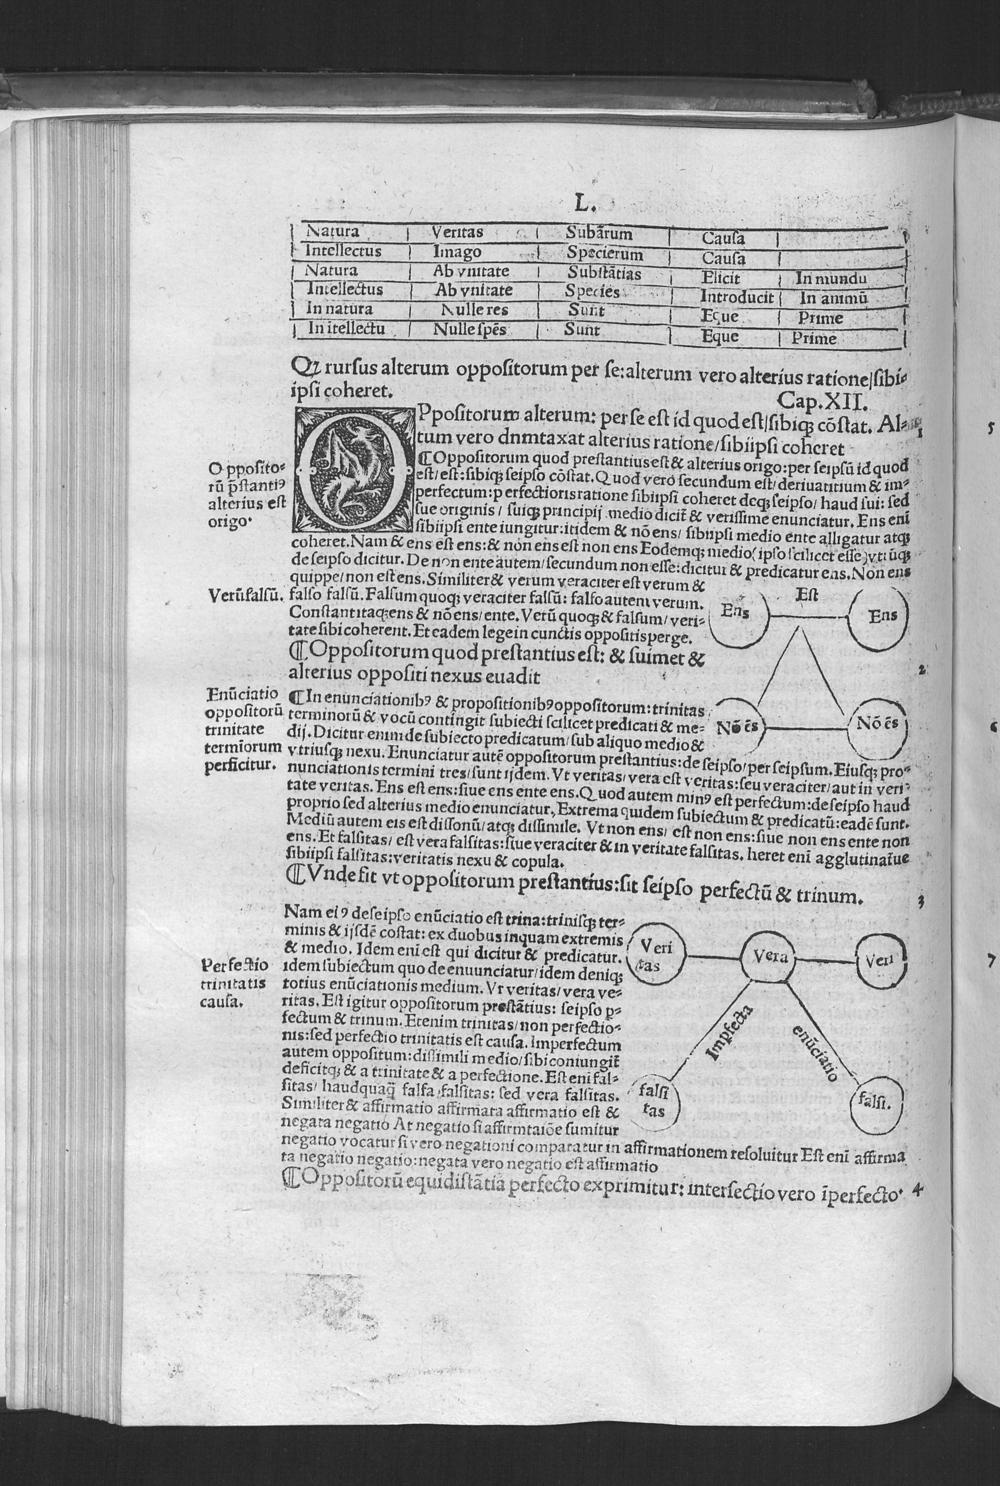 L.
Natura | Veritas | Subarum | Causa |
Intellectus | Imago | Specierum | Causa |
Natura | Ab vnitate | Substātias | Elicit | In mundu
Intellectus | Ab vnitate | Species | Introducit | In animū
In natura | Nulle res | Sunt | Eque | Prime
In itellectu | Nulle spēs | Sunt | Eque | Prime
Qꝫ rursus alterum oppositorum per se: alterum vero alterius ratione/sibi-
ipsi coheret.
Cap.XII.
OPpositorum alterum: per se est id quod est/sibiqꝫ cōstat. Al-
tum vero dnmtaxat alterius ratione/sibiipsi coheret
1
¶Oppositorum quod prestantius est & alterius origo: per seipsū id quod
est/est: sibiqꝫ seipso cōstat. Quod vero secundum est/deriuatitium & im-
perfectum: perfectioris ratione sibiipsi coheret deqꝫ seipso/ haud sui: sed
sue originis / suiqꝫ principij medio dicit̄ & verissime enunciatur. Ens eni
sibiipsi ente iungitur: itidem & nō ens/ sibiipsi medio ente alligatur atqꝫ
coheret. Nam & ens est ens: & non ens est non ens Eodemqꝫ medio(ipso scilicet esse)vtrūqꝫ
de seipso dicitur. De non ente autem/secundum non esse: dicitur & predicatur ens. Non ens
quippe/non est ens. Similiter & verum veraciter est verum &
falso falsū. Falsum quoqꝫ veraciter falsū: falso autem verum.
Constant itaqꝫ ens & nō ens/ente. Verū quoqꝫ & falsum/ veri-
tate sibi coherent. Et eadem lege in cunctis oppositis perge.
Opposito-
rū p̄stantiꝰ
alterius est
origo.
Verū falsū.
Ens
Est
Ens
Nō ēs
Nō ēs
¶Oppositorum quod prestantius est: & suimet &
alterius oppositi nexus euadit
2
Enūciatio
oppositorū
trinitate
terminorum
perficitur.
¶In enunciationibꝰ & propositionibꝰ oppositorum: trinitas
terminorū & vocū contingit subiecti scilicet predicati & me-
dij. Dicitur enim de subiecto predicatum/sub aliquo medio &
vtriusqꝫ nexu. Enunciatur autē oppositorum prestantius: de seipso/per seipsum. Eiusqꝫ pro-
nunciationis termini tres/sunt ijdem. Vt veritas/vera est veritas: seu veraciter/aut in veri-
tate veritas. Ens est ens: siue ens ente ens. Quod autem minꝰ est perfectum: de seipso haud
proprio sed alterius medio enunciatur, Extrema quidem subiectum & predicatū: eadē sunt.
Mediū autem eis est dissonū/atqꝫ dissimile. Vt non ens/ est non ens: siue non ens ente non
ens. Et falsitas/est vera falsitas: siue veraciter & in veritate falsitas. heret eni agglutinat̄ue
sibiipsi falsitas: veritatis nexu & copula.
¶Vnde fit vt oppositorum prestantius: sit seipso perfectū & trinum.
3
Nam eiꝰ de seipso enūciatio est trina: trinisqꝫ ter-
minis & ijsdē cōstat: ex duobus inquam extremis
& medio. Idem eni est qui dicitur & predicatur.
idem subiectum quo de enuunciatur/idem deniqꝫ
totius enūciationis medium. Vt veritas/vera ve-
ritas. Est igitur oppositorum prestātius: seipso p-
fectum & trinum. Etenim trinitas/non perfectio-
nis: sed perfectio trinitatis est causa. Imperfectum
autem oppositum: dissimili medio/sibi coniungit̄
deficitqꝫ & a trinitate & a perfectione. Est eni fal-
sitas/ haudquaq̄ falsa falsitas: sed vera falsitas.
Similiter & affirmatio affirmata affirmatio est &
negata negatio At negatio si affirmtaiōe sumitur
negatio vocatur si vero negationi comparatur in affirmationem resoluitur Est eni affirma
ta negatio negatio: negata vero negatio est affirmatio
Perfectio
trinitatis
causa.
Veri
tas
Vera
Veri
Imp̄fecta
enūciatio
falsi
tas
falsi.
¶Oppositorū equidistātia perfecto exprimitur: intersectio vero īperfecto.
4
5
6
7